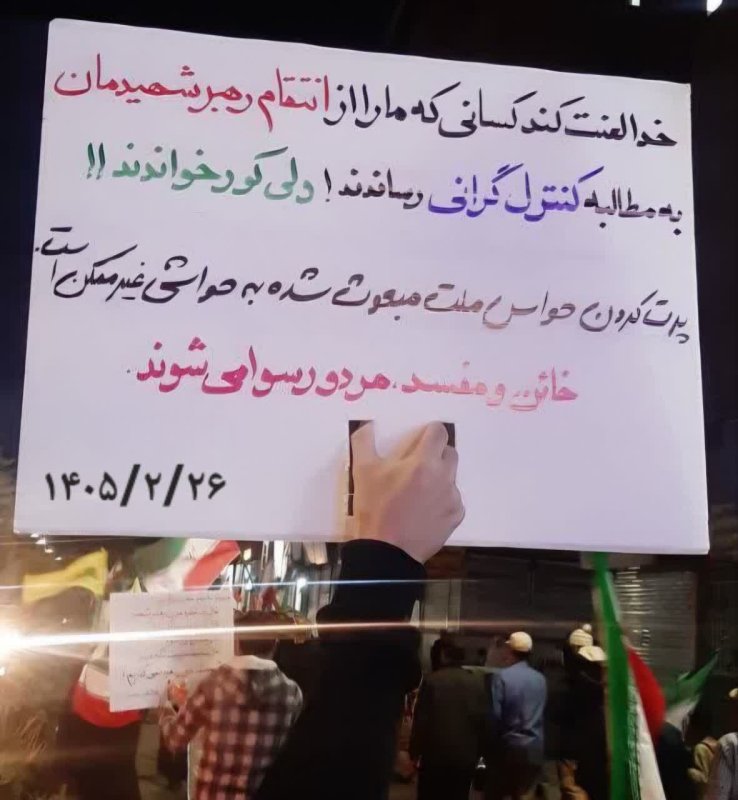 خدا لعنت کند کسانی که ما را از انتقام رهبر شهیدمان
به مطالبه کنترل گرانی رساندند! ولی کور خواندند!!
پرت کردن حواس ملت مبعوث شده به حواشی غیرممکن است.
خائن و مفسد، هر دو رسوا می شوند.
۱۴۰۵/۲/۲۶